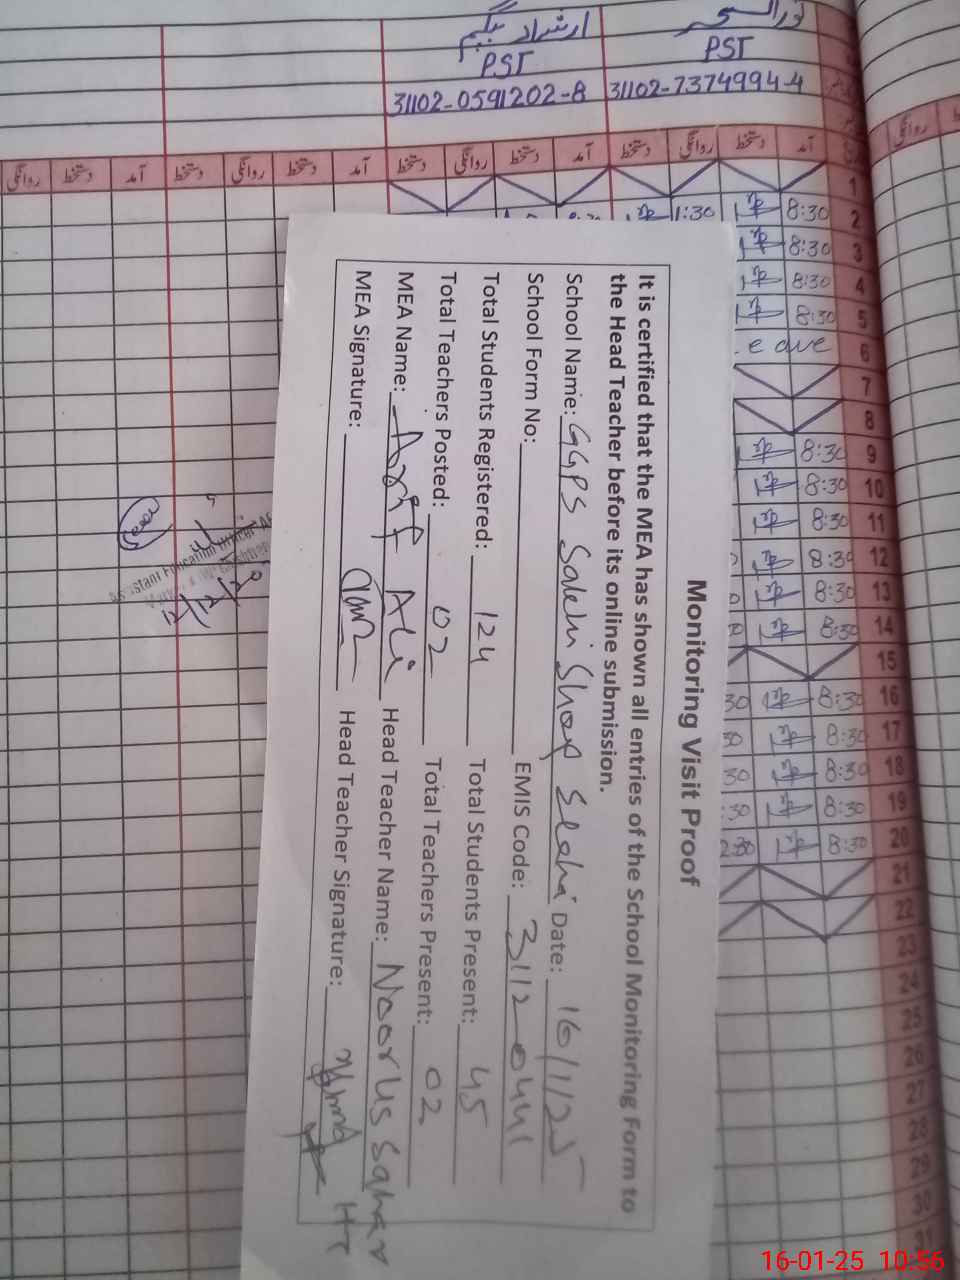 ارشاد بیگم
PST
PST
31102-0591202-8
31102-7374994-4
روانگی دستخط آمد دستخط روانگی دستخط آمد دستخط روانگی دستخط آمد دستخط روانگی دستخط آمد
1
2 8:30 1:30
3 8:30
4 8:30
5 8:30
6 leave
7
8
9 8:30
10 8:30
11 8:30
12 8:30
13 8:30
14 8:30
15
16 8:30 30
17 8:30 30
18 8:30 30
19 8:30 :30
20 8:30 2:30
21
22
23
24
25
26
27
28
29
30
31
Monitoring Visit Proof
It is certified that the MEA has shown all entries of the School Monitoring Form to
the Head Teacher before its online submission.
School Name: GGPS Saleh Shop Date: 16/1/25
School Form No: EMIS Code: 3112-0441
Total Students Registered: 124 Total Students Present: 45
Total Teachers Posted: 02 Total Teachers Present: 02
MEA Name: Asif Ali Head Teacher Name: Noor us Sahar
MEA Signature: Head Teacher Signature: HT
Assistant Education Officer
16-01-25 10:56